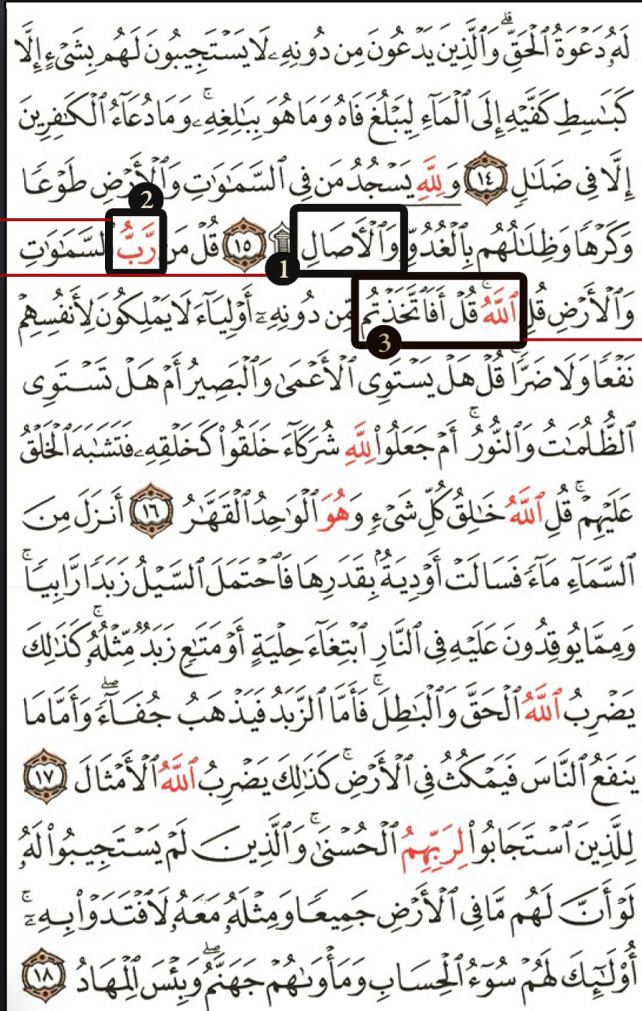 لَهُۥ دَعْوَةُ ٱلْحَقِّ ۖ وَٱلَّذِينَ يَدْعُونَ مِن دُونِهِۦ لَا يَسْتَجِيبُونَ لَهُم بِشَىْءٍ إِلَّا
كَبَٰسِطِ كَفَّيْهِ إِلَى ٱلْمَآءِ لِيَبْلُغَ فَاهُ وَمَا هُوَ بِبَٰلِغِهِۦ ۚ وَمَا دُعَآءُ ٱلْكَٰفِرِينَ
إِلَّا فِى ضَلَٰلٍ ١٤ وَلِلَّهِ يَسْجُدُ مَن فِى ٱلسَّمَٰوَٰتِ وَٱلْأَرْضِ طَوْعًا
2
وَكَرْهًا وَظِلَٰلُهُم بِٱلْغُدُوِّ وَٱلْأَصَالِ ۩ ١٥ قُلْ مَن رَّبُّ ٱلسَّمَٰوَٰتِ
1
وَٱلْأَرْضِ قُلِ ٱللَّهُ ۚ قُلْ أَفَٱتَّخَذْتُم مِّن دُونِهِۦٓ أَوْلِيَآءَ لَا يَمْلِكُونَ لِأَنفُسِهِمْ
3
نَفْعًا وَلَا ضَرًّا ۚ قُلْ هَلْ يَسْتَوِى ٱلْأَعْمَىٰ وَٱلْبَصِيرُ أَمْ هَلْ تَسْتَوِى
ٱلظُّلُمَٰتُ وَٱلنُّورُ ۗ أَمْ جَعَلُوا۟ لِلَّهِ شُرَكَآءَ خَلَقُوا۟ كَخَلْقِهِۦ فَتَشَٰبَهَ ٱلْخَلْقُ
عَلَيْهِمْ ۚ قُلِ ٱللَّهُ خَٰلِقُ كُلِّ شَىْءٍ وَهُوَ ٱلْوَٰحِدُ ٱلْقَهَّٰرُ ١٦ أَنزَلَ مِنَ
ٱلسَّمَآءِ مَآءً فَسَالَتْ أَوْدِيَةٌۢ بِقَدَرِهَا فَٱحْتَمَلَ ٱلسَّيْلُ زَبَدًا رَّابِيًا ۚ
وَمِمَّا يُوقِدُونَ عَلَيْهِ فِى ٱلنَّارِ ٱبْتِغَآءَ حِلْيَةٍ أَوْ مَتَٰعٍ زَبَدٌ مِّثْلُهُۥ ۚ كَذَٰلِكَ
يَضْرِبُ ٱللَّهُ ٱلْحَقَّ وَٱلْبَٰطِلَ ۚ فَأَمَّا ٱلزَّبَدُ فَيَذْهَبُ جُفَآءً ۖ وَأَمَّا مَا
يَنفَعُ ٱلنَّاسَ فَيَمْكُثُ فِى ٱلْأَرْضِ ۚ كَذَٰلِكَ يَضْرِبُ ٱللَّهُ ٱلْأَمْثَالَ ١٧
لِلَّذِينَ ٱسْتَجَابُوا۟ لِرَبِّهِمُ ٱلْحُسْنَىٰ ۚ وَٱلَّذِينَ لَمْ يَسْتَجِيبُوا۟ لَهُۥ
لَوْ أَنَّ لَهُم مَّا فِى ٱلْأَرْضِ جَمِيعًا وَمِثْلَهُۥ مَعَهُۥ لَٱفْتَدَوْا۟ بِهِۦٓ ۚ
أُو۟لَٰٓئِكَ لَهُمْ سُوٓءُ ٱلْحِسَابِ وَمَأْوَىٰهُمْ جَهَنَّمُ ۖ وَبِئْسَ ٱلْمِهَادُ ١٨